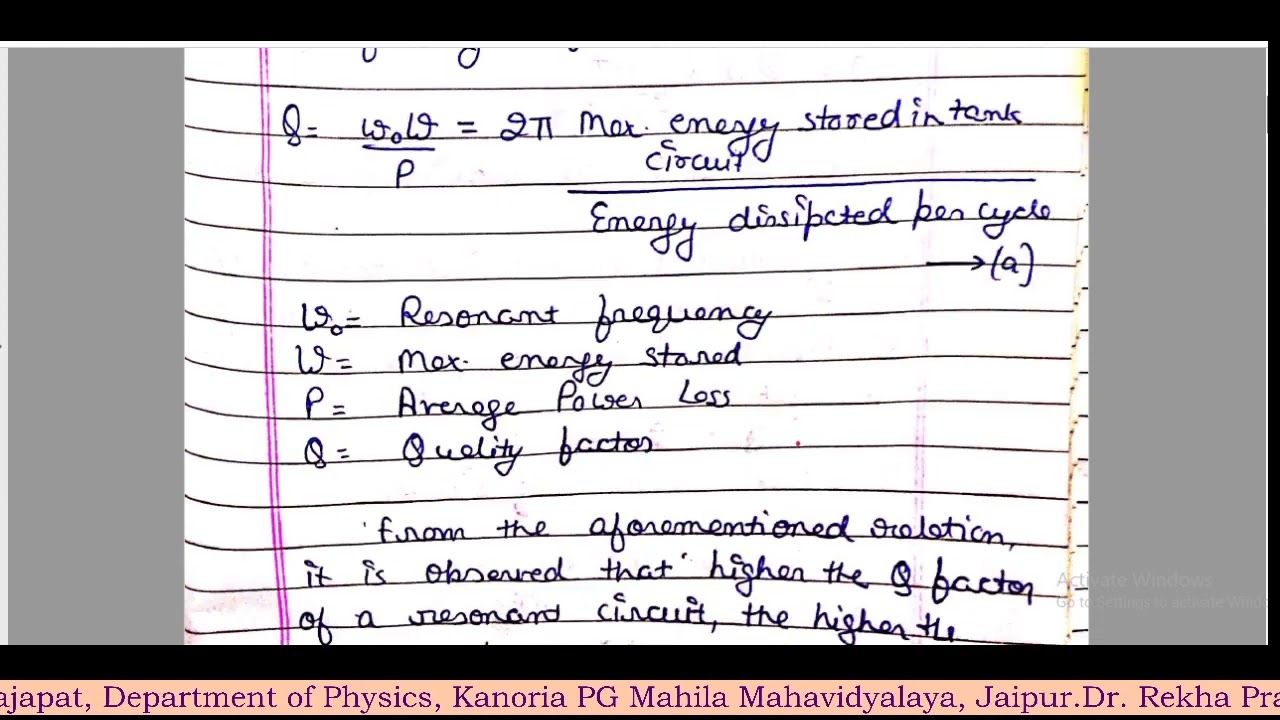 Q = ω₀W = 2π Max. energy stored in tank
circuit
P
Energy dissipated per cycle
→ (a)
ω₀ = Resonant frequency
W = Max. energy stored
P = Average Power Loss
Q = Quality factor
from the aforementioned relation,
it is observed that higher the Q factor
of a resonant circuit, the higher the
Activate Windows
Go to Settings to activate Windo
ajapat, Department of Physics, Kanoria PG Mahila Mahavidyalaya, Jaipur.Dr. Rekha Pra